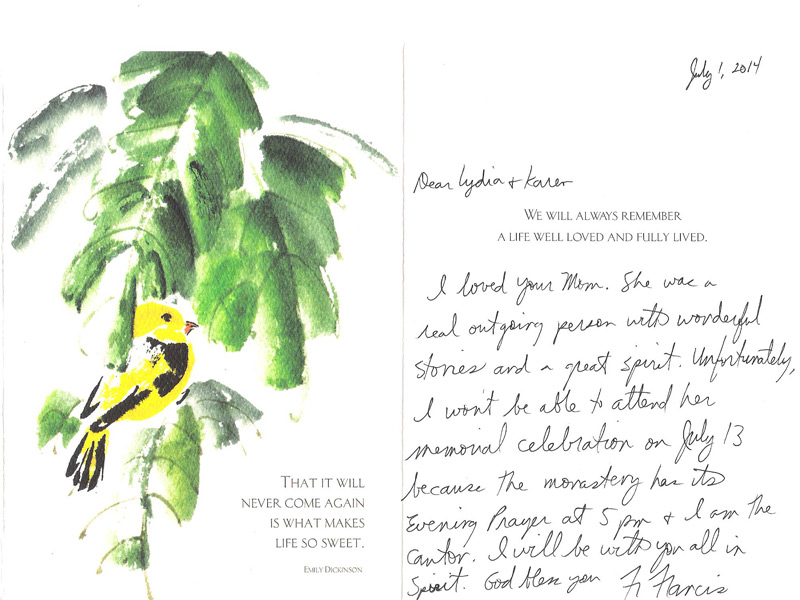 THAT IT WILL
NEVER COME AGAIN
IS WHAT MAKES
LIFE SO SWEET.
EMILY DICKINSON
July 1, 2014
Dear Lydia + Karer
WE WILL ALWAYS REMEMBER
A LIFE WELL LOVED AND FULLY LIVED.
I loved your Mom. She was a
real outgoing person with wonderful
stories and a great spirit. Unfortunately,
I won't be able to attend her
memorial celebration on July 13
because the monastery has its
Evening Prayer at 5 pm + I am the
cantor. I will be with you all in
Spirit. God bless you Fr Francis